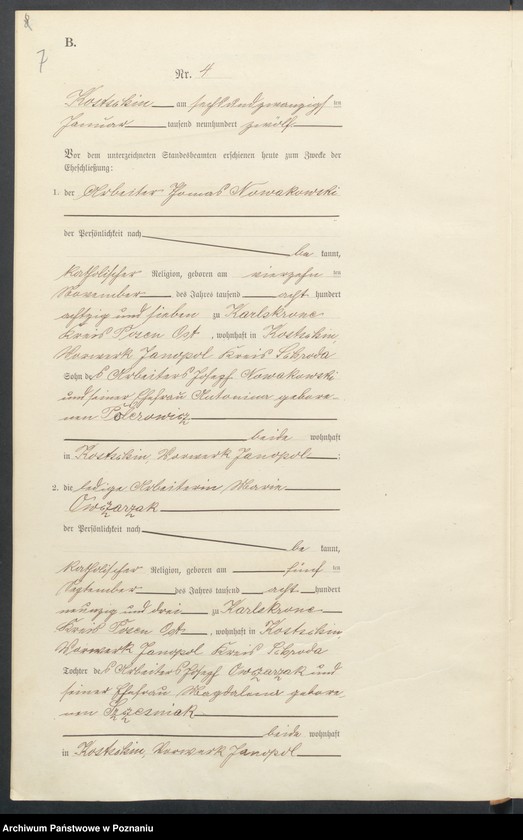 7
B.
Nr. 4
Kostschin am sechsundzwanzigsten
Januar tausend neunhundert zwölf
Vor dem unterzeichneten Standesbeamten erschienen heute zum Zwecke der
Eheschließung:
1. der Arbeiter Thomas Nowakowski
der Persönlichkeit nach
be kannt,
katholischer Religion, geboren am vierzehn ten
November des Jahres tausend acht hundert
achtzig und sieben zu Karlskrone
Kreis Posen Ost, wohnhaft in Kostschin,
Vorwerk Janopol Kreis Schroda
Sohn des Arbeiters Josef Nowakowski
und seiner Ehefrau Antonina gebore-
nen
beide wohnhaft
in Kostschin, Vorwerk Janopol;
2. die ledige Arbeiterin Maria
Owczarzak
der Persönlichkeit nach
be kannt,
katholischer Religion, geboren am fünf ten
September des Jahres tausend acht hundert
neunzig und drei zu Karlskrone
Kreis Posen Ost, wohnhaft in Kostschin,
Vorwerk Janopol Kreis Schroda
Tochter des Arbeiters Josef Owczarzak und
seiner Ehefrau Magdalena gebore-
nen Szczesniak
beide wohnhaft
in Kostschin, Vorwerk Janopol
Archiwum Państwowe w Poznaniu